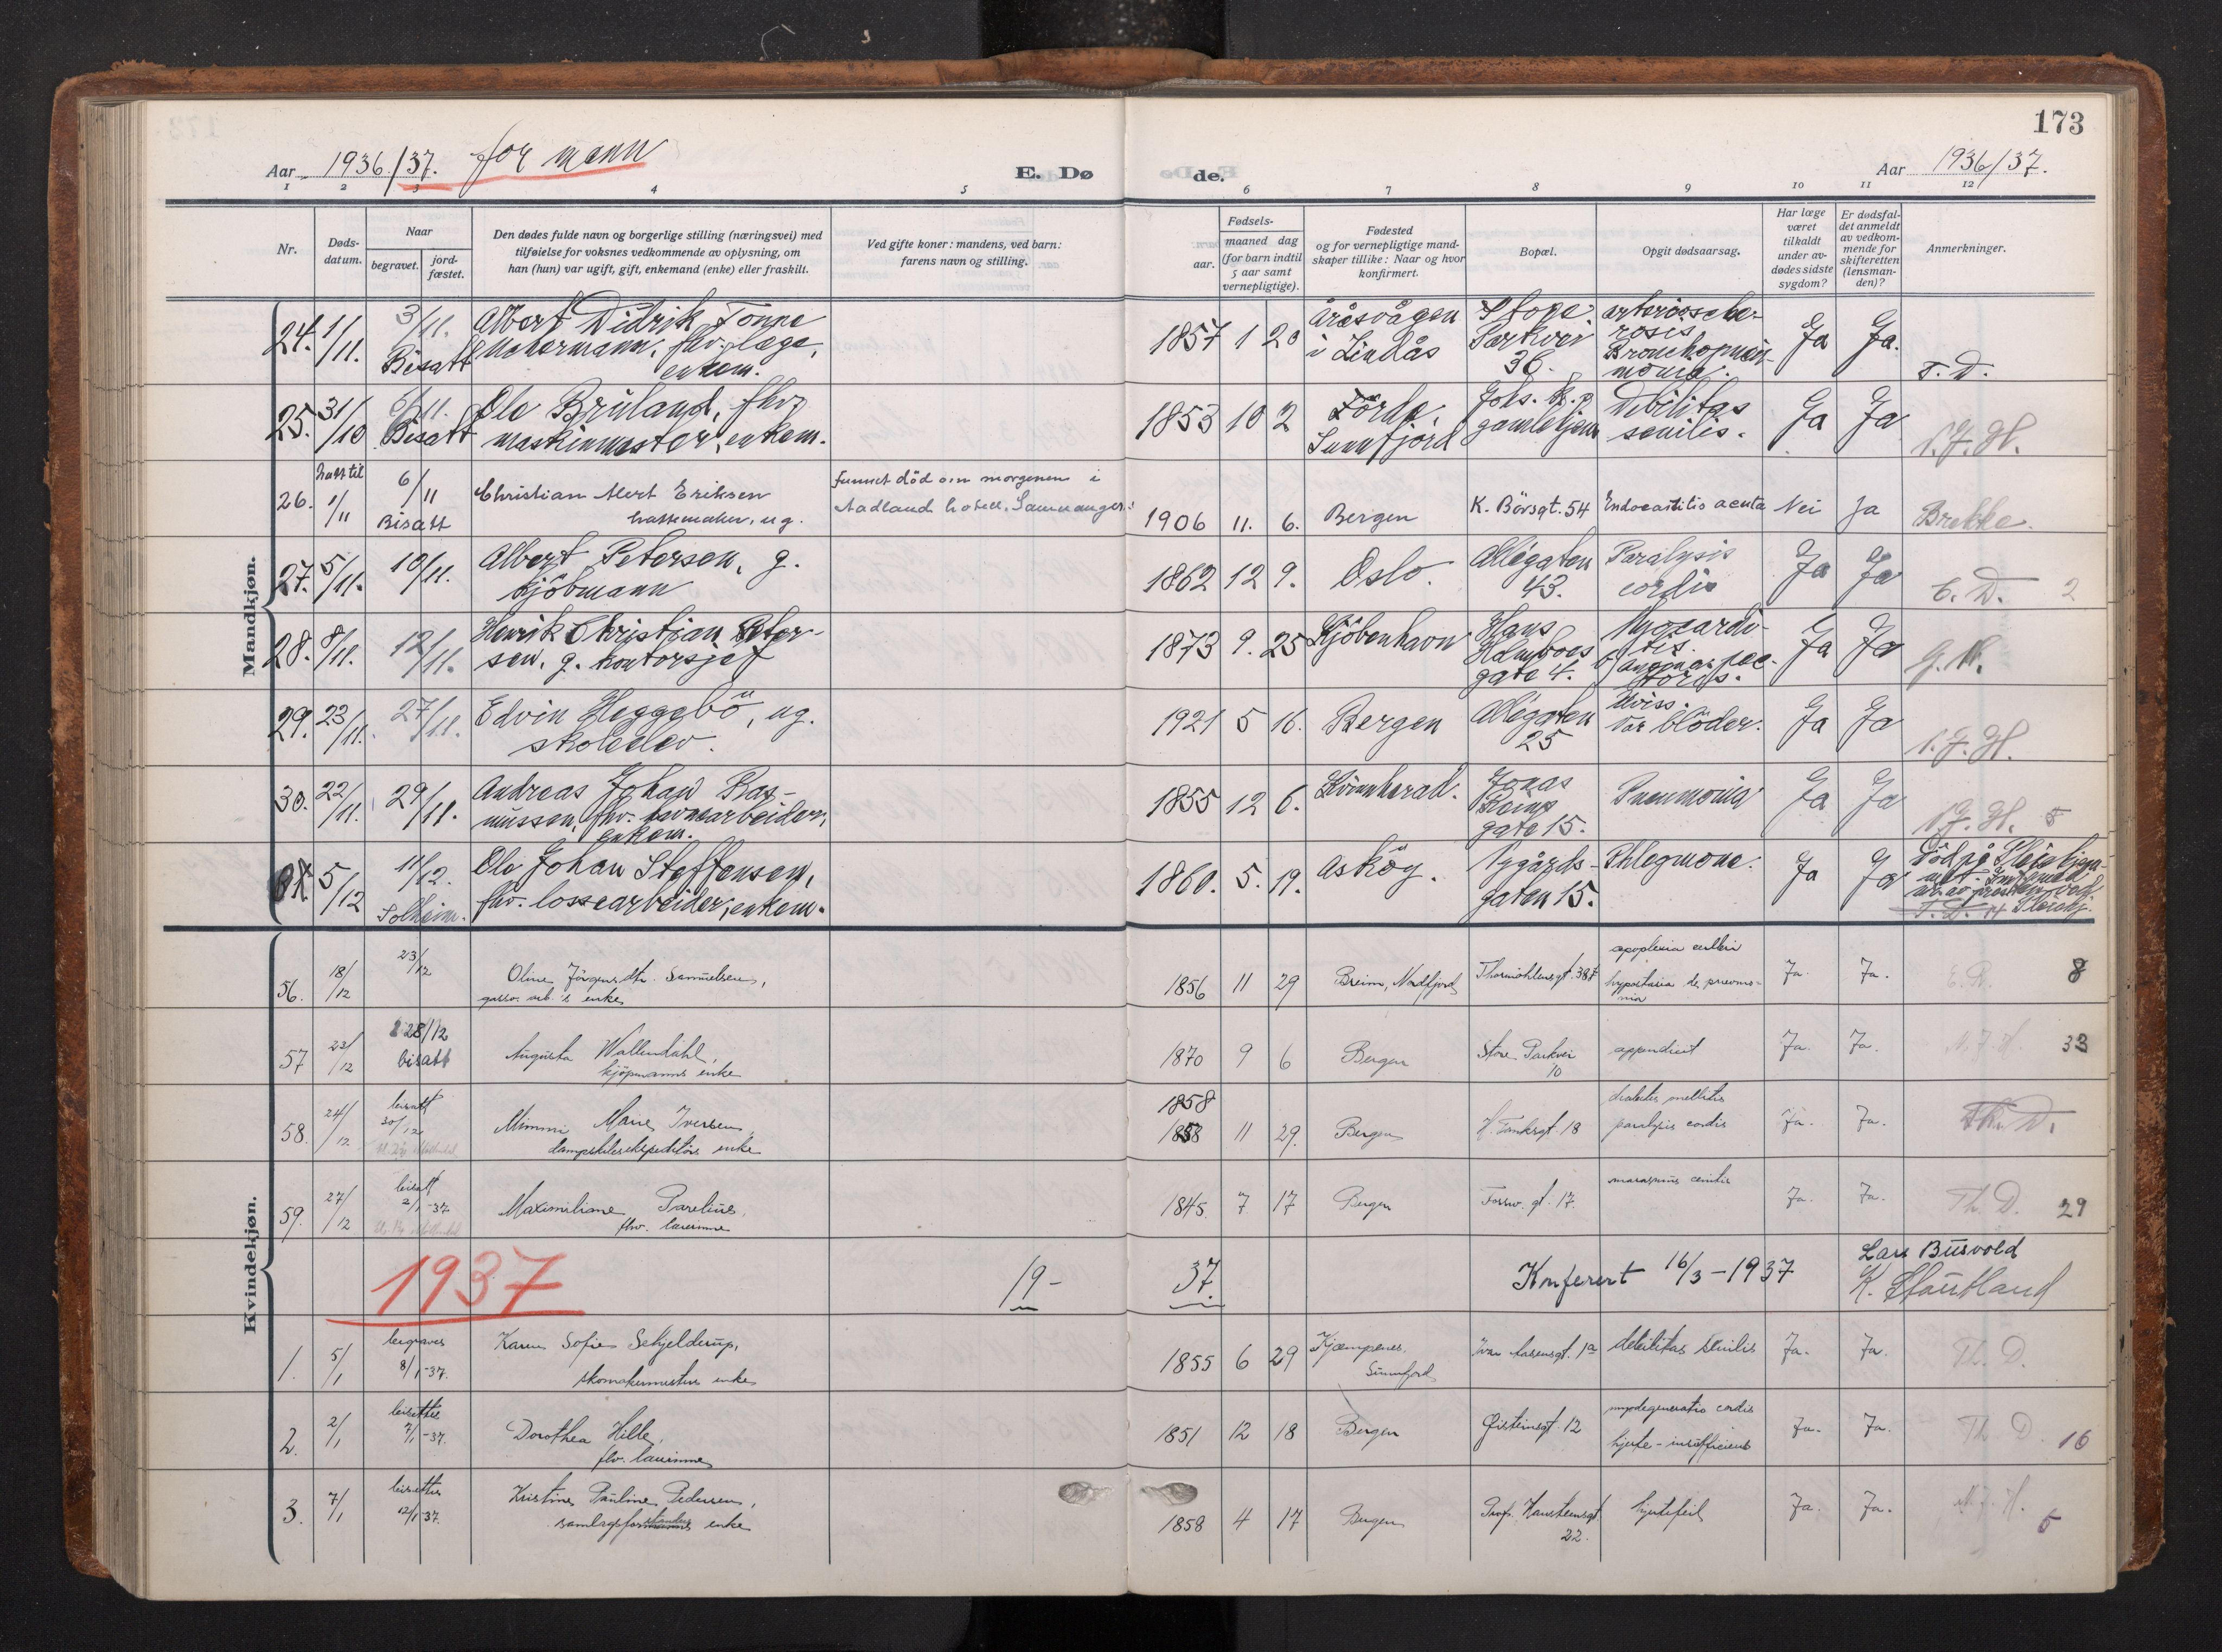 173
Aar 1936/37. for mann
E. Dø de.
Aar 1936/37.
1 2 3 4 5 6 7 8 9 10 11 12
Nr.
Døds-
datum.
Naar
begravet.
jord-
fæstet.
Den dødes fulde navn og borgerlige stilling (næringsvei) med
tilføielse for voksnes vedkommende av oplysning, om
han (hun) var ugift, gift, enkemand (enke) eller fraskilt.
Ved gifte koner: mandens, ved barn:
farens navn og stilling.
Fødsels-
aar.
maaned dag
(for barn indtil
5 aar samt
vernepligtige).
Fødested
og for vernepligtige mand-
skaper tillike: Naar og hvor
konfirmert.
Bopæl.
Opgit dødsaarsag.
Har læge
været
tilkaldt
under av-
dødes sidste
sygdom?
Er dødsfal-
det anmeldt
av vedkom-
mende for
skifteretten
(lensman-
den)?
Anmerkninger.
Mandkjøn.
24. 1/11. 3/11. Bisatt
Albert Didrik Tonne
flv. læge,
enkem.
1857 1 20
i Lindås
Parkvei
36.
Ja Ja.
T. D.
25. 31/10 6/11. Bisatt
Ole Bruland, flv.
maskinmester, enkem.
1853 10 2
Förde,
Sunnfjord
gamlehjem
Debilitas
senilis.
Ja Ja
26. natt til 1/11 6/11 Bisatt
Christian Mert Eriksen
hattemaker, ug.
funnet död om morgenen i
Aadland hotell, Samnanger.
1906 11. 6.
Bergen
K. Börsgt. 54
Endocarditis acuta
Nei Ja
Brekke.
27. 5/11. 10/11.
Albert Petersen, g.
kjöbmann
1862 12 9.
Oslo.
Allégaten
43.
Paralysis
cordis
Ja Ja
2
28. 8/11. 12/11.
Henrik Christian Peter-
sen, g. kontorsjef
1873 9. 25
Kjöbenhavn
Hans
Holmboes
gate 4.
Myocardi-
tis.
Ja Ja
29. 23/11. 27/11.
Edvin Heggebö, ug.
skoleelev.
1921 5 16.
Bergen
Allégaten
25
Uviss.
Var blöder.
Ja Ja
30. 22/11. 29/11.
Andreas Johan Ras-
mussen, flv. havnearbeider,
enkem.
1855 12 6.
Kvinnherad.
Jonas
Reins
gate 15.
Pneumonia
Ja Ja
5
31. 5/12 11/12. Solheim.
Ole Johan Steffensen,
flv. lossearbeider, enkem.
1860. 5. 19.
Asköy.
Nygårds-
gaten 15.
Phlegmone.
Ja Ja
Kvindekjøn.
56. 18/12 23/12
Oline Jörgensdtr. Samuelsen,
enke
1856 11 29
Breim, Nordfjord
Thormöhlensgt. 38
apoplexia cerebri
Ja. Ja.
8
57 23/12 28/12 bisatt
Augusta Wallendahl,
kjöpmanns enke
1870 9 6
Bergen
Store Parkvei
10
appendicit
Ja. Ja.
33
58. 24/12 bisatt 30/12
Mimmi Marie Iversen,
dampskibsekspeditörs enke
1858
1858 11 29.
Bergen
H. Tanksgt. 18
diabetes mellitus
paralysis cordis
Ja. Ja.
Th. D.
59. 27/12 bisatt 2/1-37.
Maximiliane Parelius,
flv. lærerinne
1845. 7. 17
Bergen
Fossw. gt. 17.
marasmus senilis
Ja. Ja.
Th. D. 29
1937
19- 37.
Konferert 16/3-1937
Lars Busvold
1. 5/1 begraves 8/1-37.
Karen Sofie Schjelderup,
skomakermesters enke
1855 6 29
Sunnfjord
Ivar Aasensgt. 1a
debilitas senilis
Ja. Ja.
Th. D.
2. 2/1 bisettes 7/1-37.
Dorothea Hille,
flv. lærerinne
1851 12 18
Bergen
Øisteinsgt. 12
myodegeneratio cordis
hjerte-insufficiens
Ja. Ja.
Th. D. 16
3. 7/1 bisettes 12/1-37.
Kristine Pauline Pedersen,
enke
1858 4 17
Bergen
Prof. Hansteensgt.
22.
hjertefeil
Ja. Ja.
5